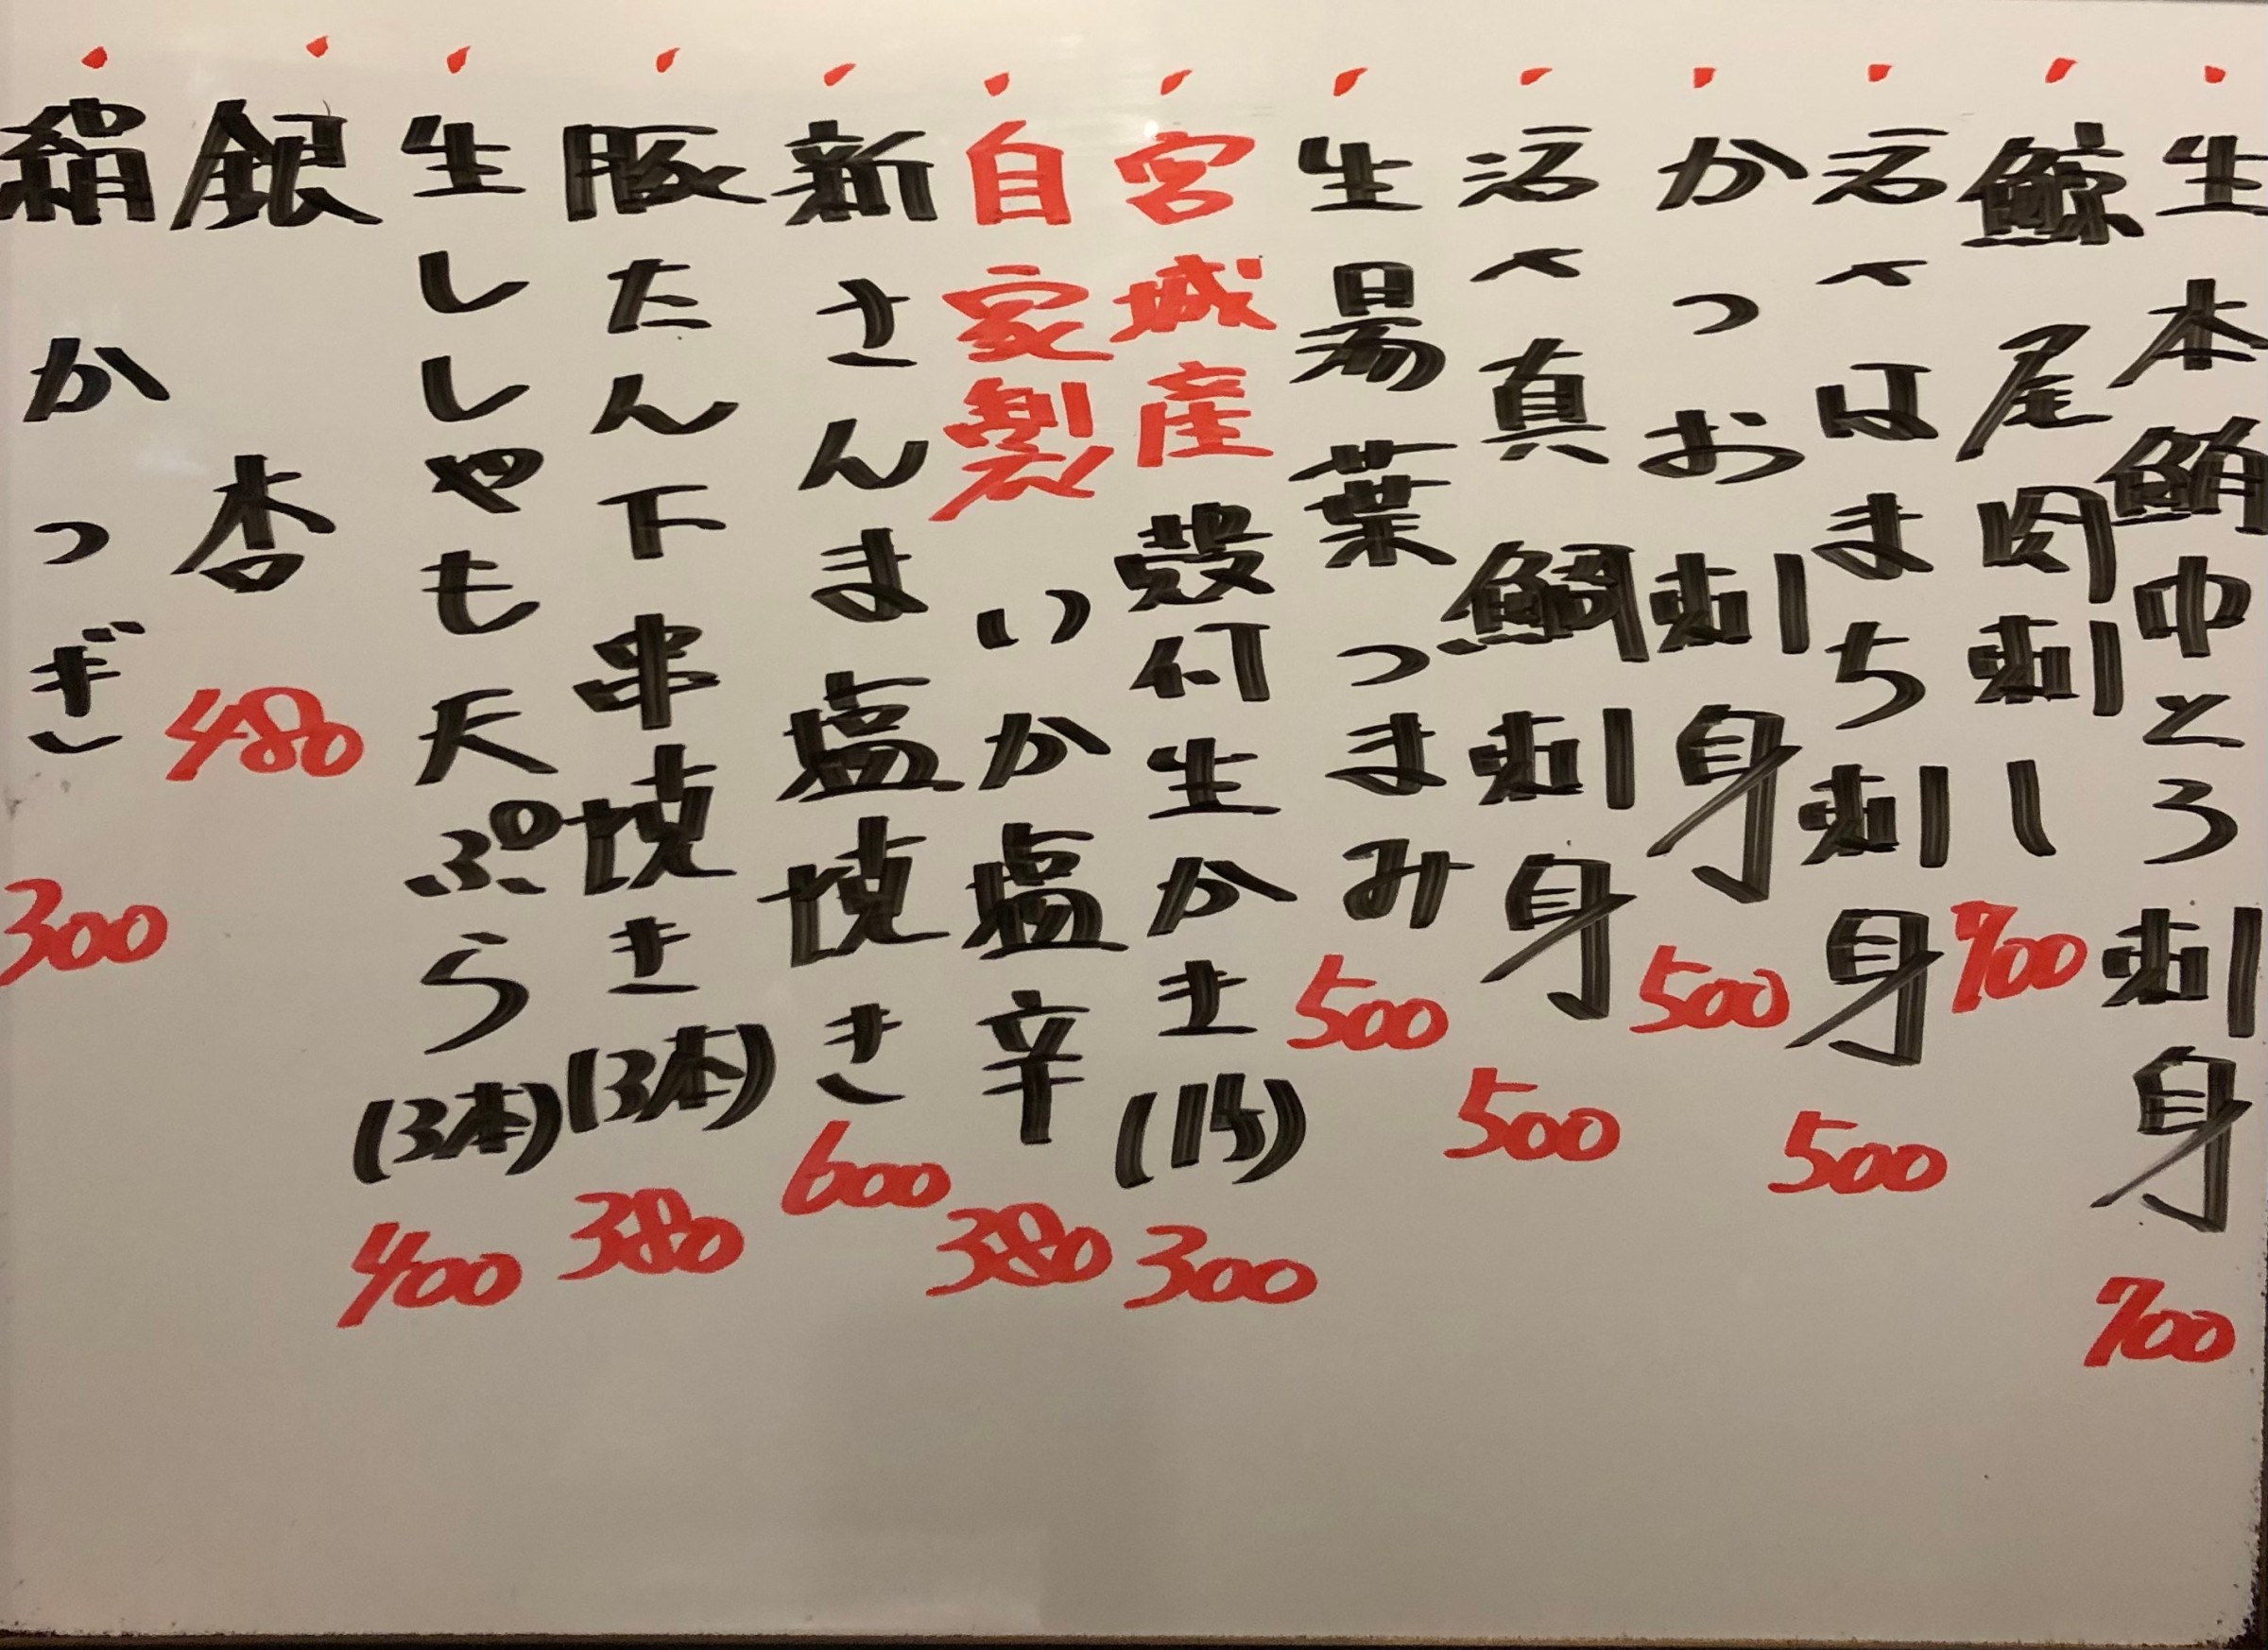 ・生本鮪中とろ刺身 700
・鯨尾肉刺し 700
・活〆はまち刺身 500
・かつお刺身 500
・活〆真鯛刺身 500
・生湯葉つまみ 500
・宮城産殻付生かき(1ケ) 300
・自家製いか塩辛 380
・新さんま塩焼き 600
・豚たん下串焼き(3本) 380
・生ししゃも天ぷら(3本) 400
・銀杏 480
・絹かつぎ 300